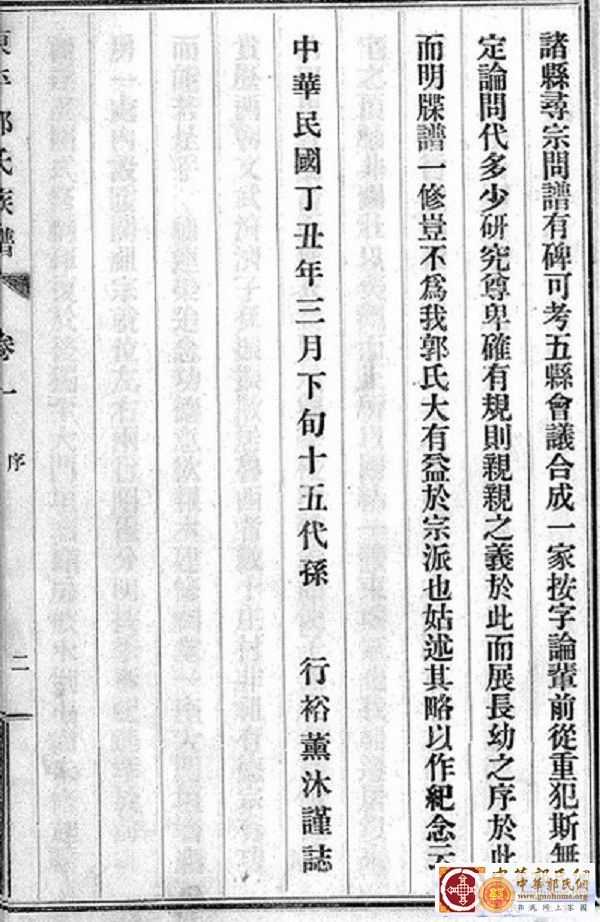 諸縣尋宗問譜有碑可考五縣會議合成一家按字論輩前從重犯斯無
定論問代多少研究尊卑確有規則親親之義於此而展長幼之序於此
而明牒譜一修豈不爲我郭氏大有益於宗派也姑述其略以作紀念云
中華民國丁丑年三月下旬十五代孫 行裕薰沐謹誌
郭氏族譜
卷一
序
二
中華郭氏網
www.guohome.org
郭氏網上家園